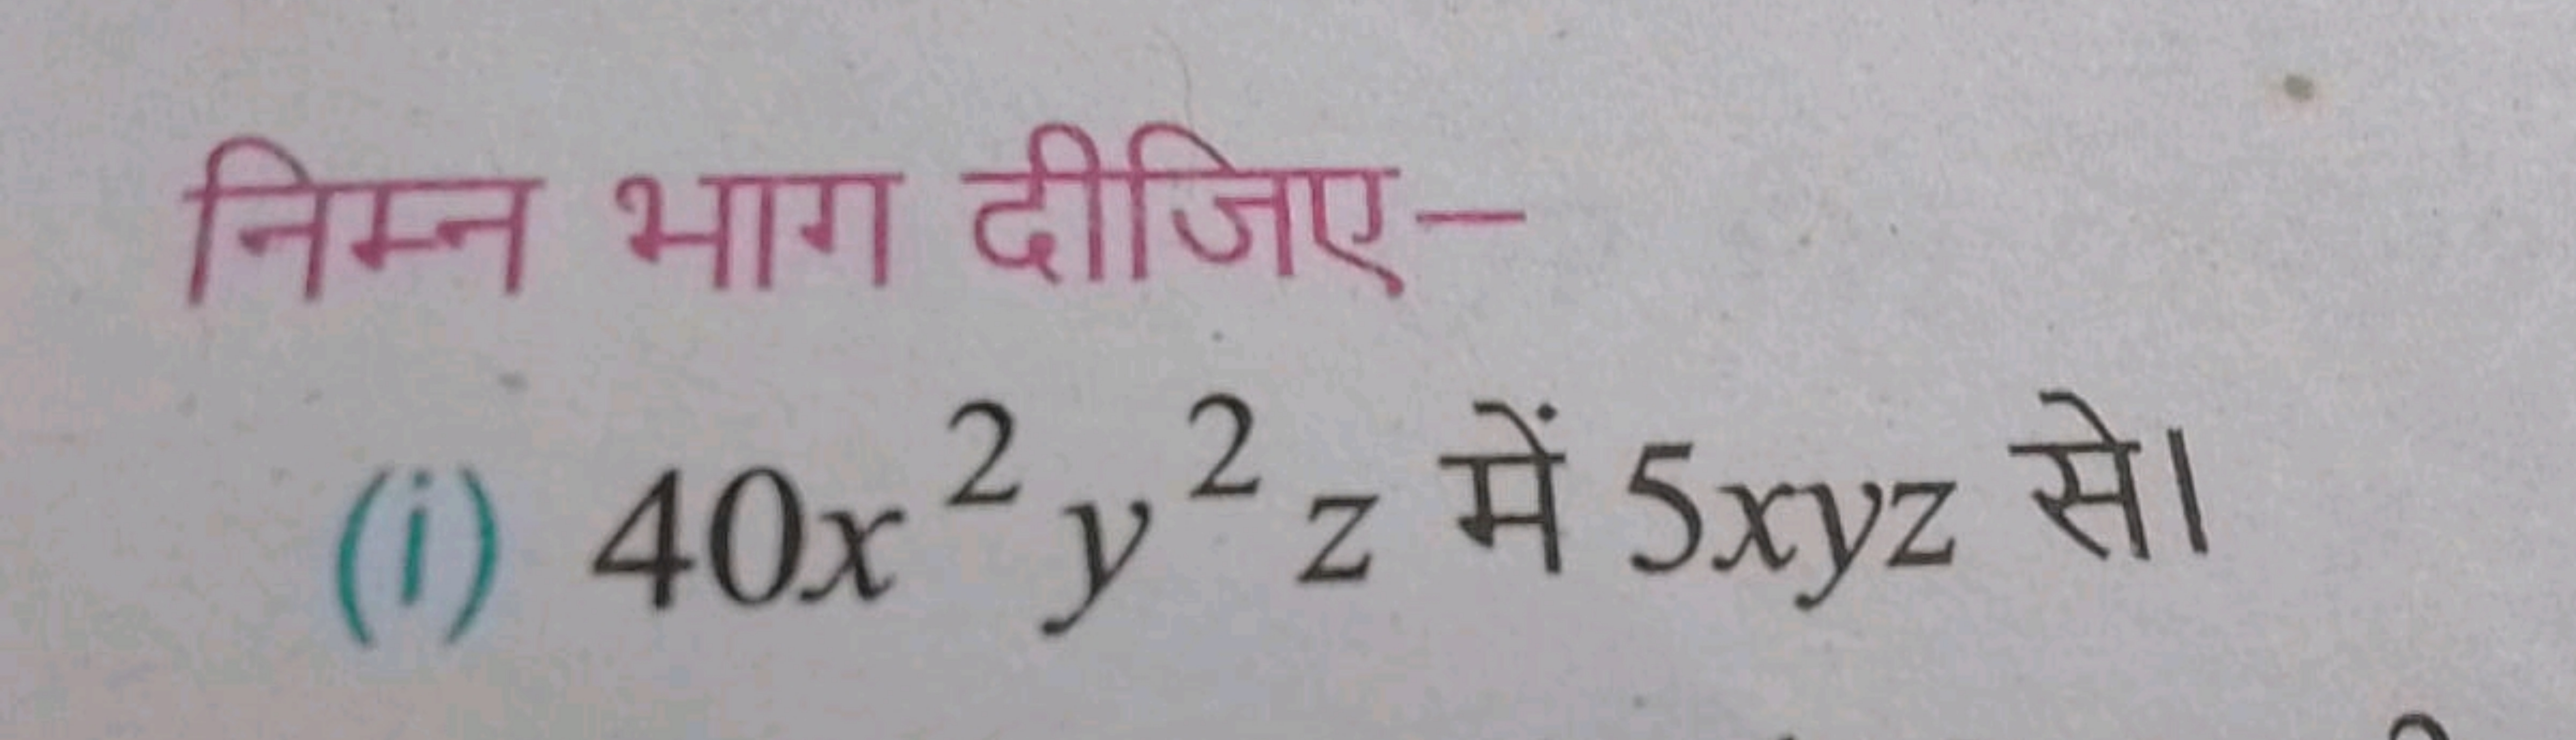 निम्न भाग दीजिए–
(i) 40x² y² z में 5xyz से।